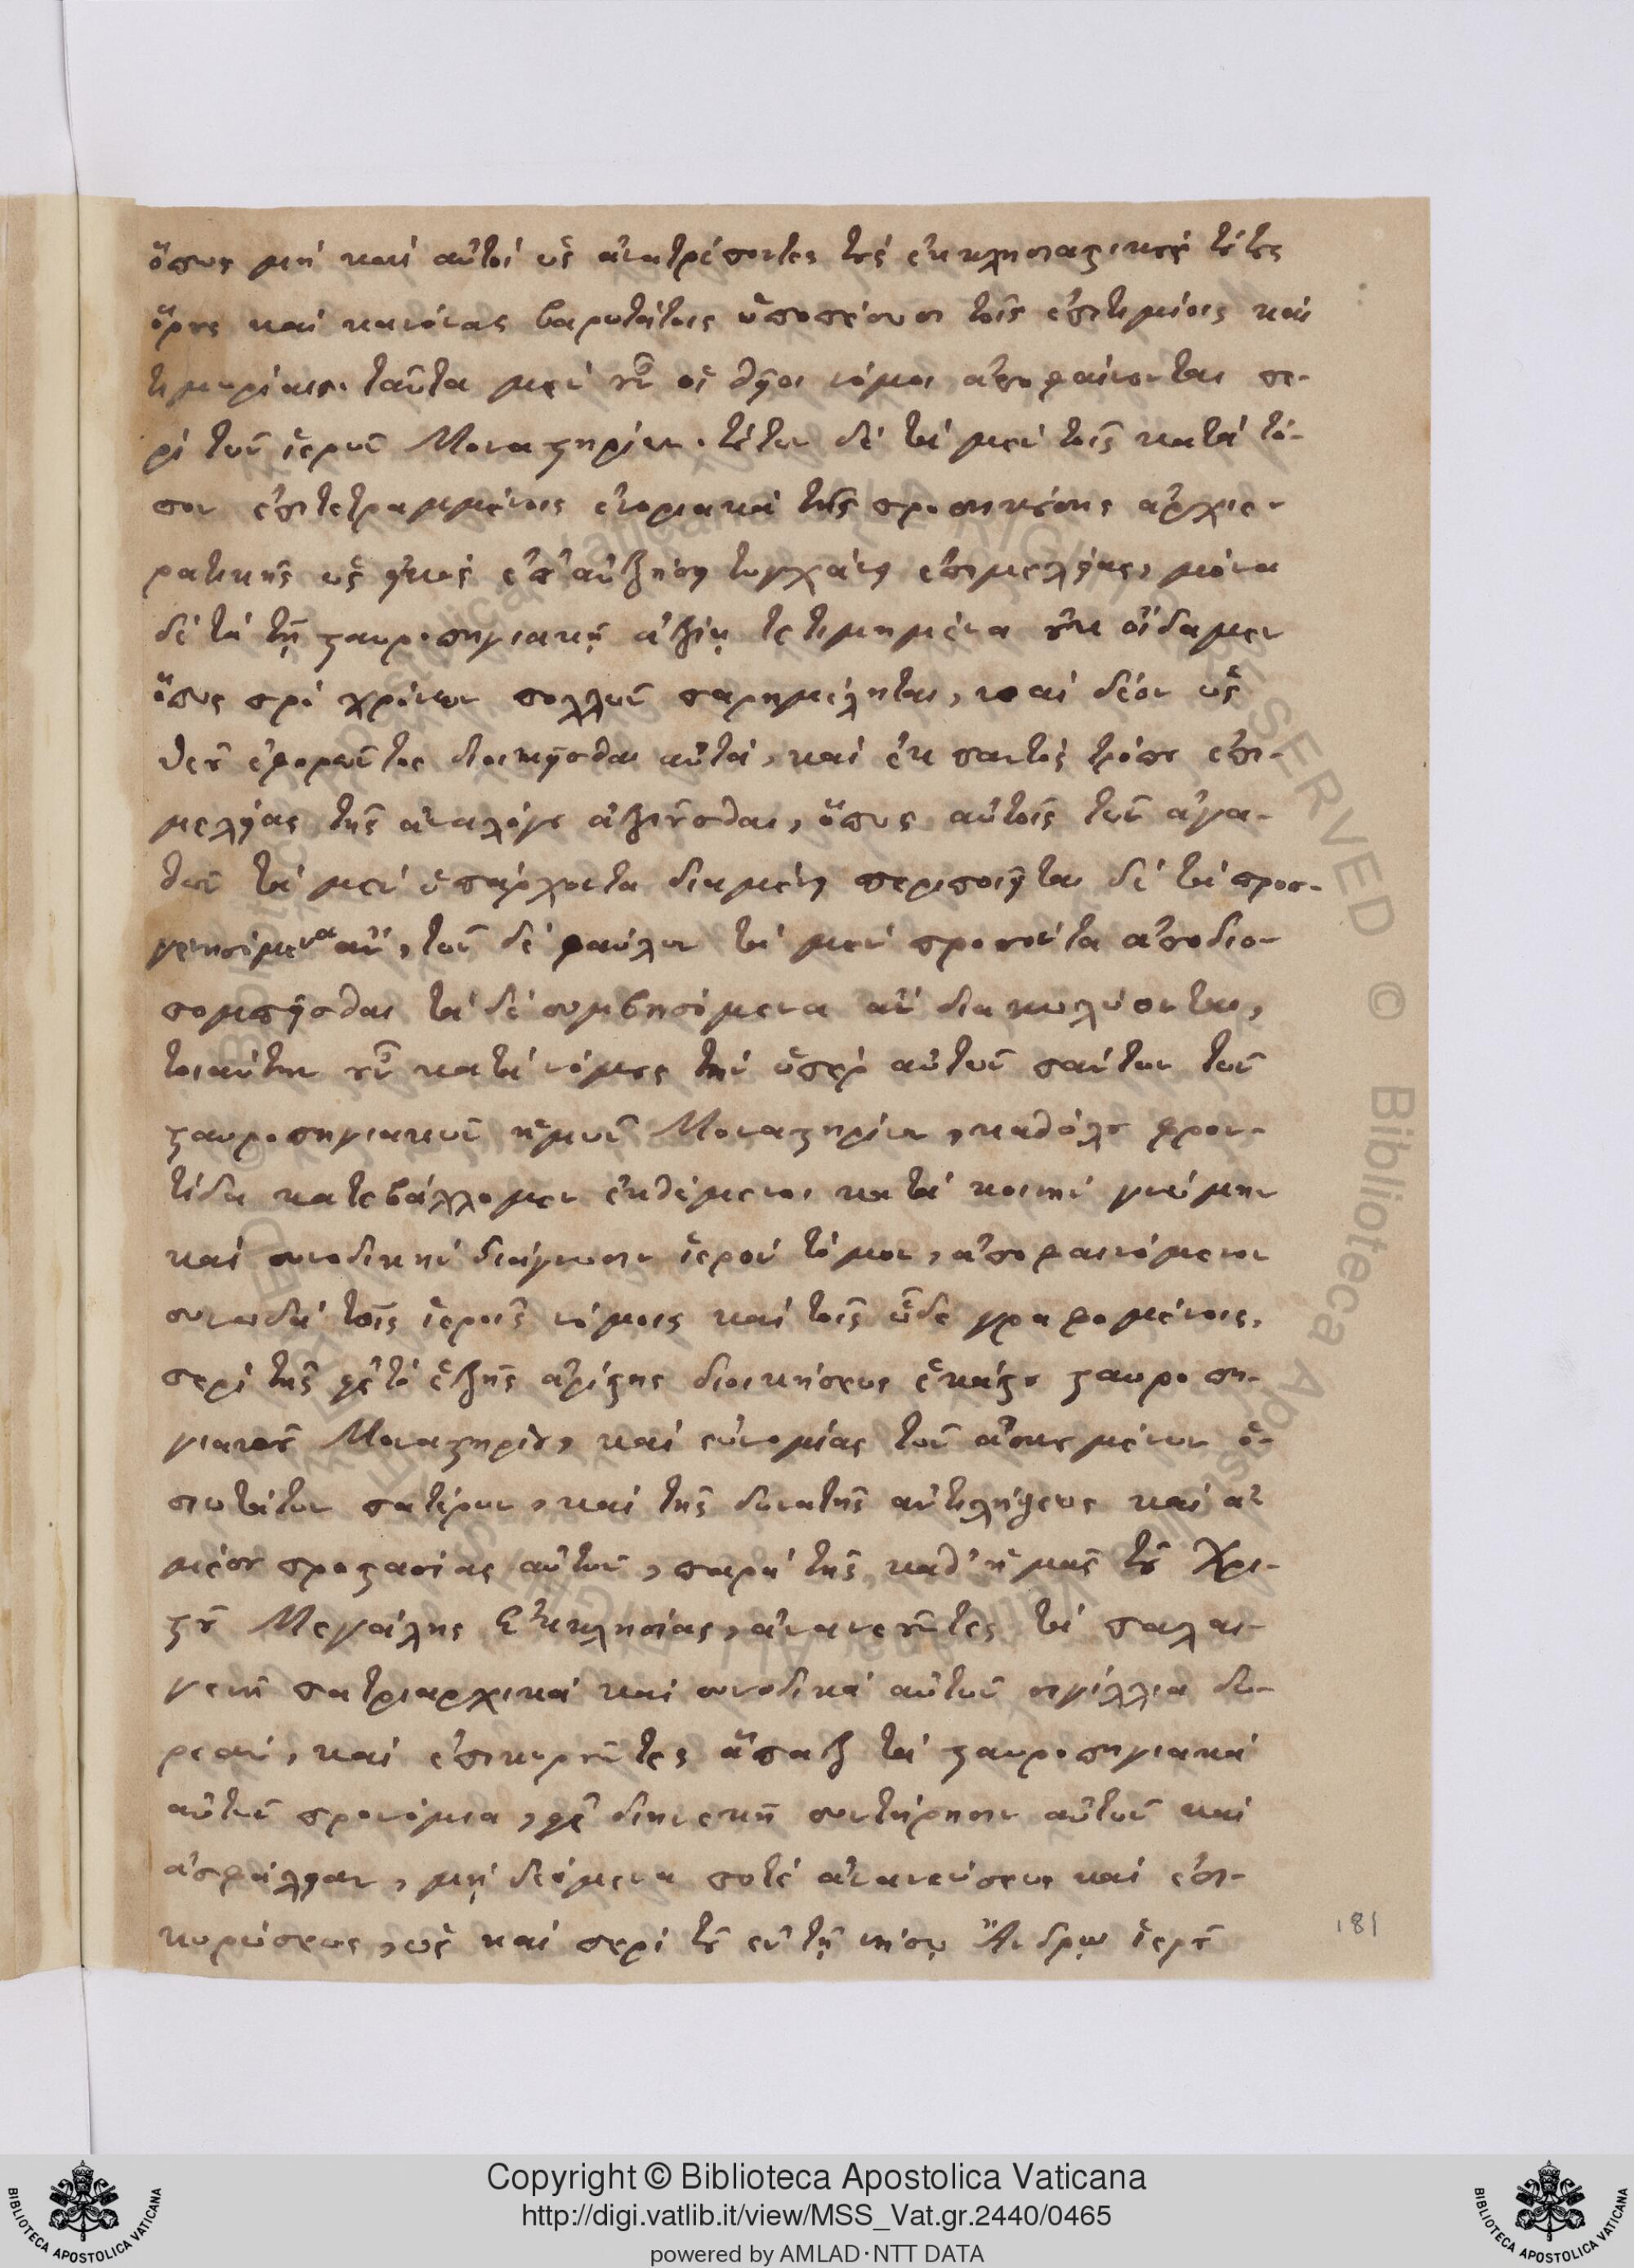 ὅπως μὴ καὶ αὐτοὶ ὡς ἀνατρέποντες τοὺς ἐκκλησιαστικοὺς τούτους
ὅρους καὶ κανόνας βαρυτάτοις ὑποπέσωσι τοῖς ἐπιτιμίοις καὶ
τιμωρίαις. ταῦτα μὲν οὖν οἱ θεῖοι νόμοι ἀποφαίνονται πε-
ρὶ τῶν ἱερῶν Μοναστηρίων. τούτων δὲ τὰ μὲν τοῖς κατὰ τό-
πον ἐπιτετραμμένοις ἐνοριακὰ τῆς προσηκούσης ἀρχιε-
ρατικῆς ὡς εἰκὸς ἐπ' αὐξήσει τυγχάνει ἐπιμελείας, μόνα
δὲ τὰ τῇ σταυροπηγιακῇ ἀξίᾳ τετιμημένα οὐκ οἴδαμεν
ὅπως πρὸ χρόνων πολλῶν παρημέληται, καὶ δέον ὡς
θεοῦ ἐφορῶντος διοικεῖσθαι αὐτὰ, καὶ ἐκ παντὸς τρόπου ἐπι-
μελείας τῆς ἀναλόγου ἀξιοῦσθαι, ὅπως αὐτοῖς τῶν ἀγα-
θῶν τὰ μὲν ὑπάρχοντα διαμένῃ περιποιῆται δὲ τὰ προσ-
γενησόμενα ἂν, τῶν δὲ φαύλων τὰ μὲν προσόντα ἀποδιο-
πομπεῖσθαι τὰ δὲ συμβησόμενα ἂν διακωλύονται,
τοιαύτην οὖν κατὰ νόμους τὴν ὑπὲρ αὐτῶν πάντων τῶν
σταυροπηγιακῶν ἡμῶν Μοναστηρίων, καθόλου φρον-
τίδα κατεβάλλομεν ἐκθέμενοι κατὰ κοινὴν γνώμην
καὶ συνοδικὴν διάγνωσιν ἱερὸν τόμον, ἀποφαινόμενον
συνῳδὰ τοῖς ἱεροῖς νόμοις καὶ τοῖς ὧδε γραφομένοις,
περὶ τῆς εἰς τὸ ἑξῆς ἀρίστης διοικήσεως ἑκάστου σταυροπη-
γιακοῦ Μοναστηρίου, καὶ εὐνομίας τῶν ἀσκουμένων ὁ-
σιωτάτων πατέρων, καὶ τῆς δυνατῆς ἀντιλήψεως καὶ ἀ-
μέσου προστασίας αὐτῶν, παρὰ τῆς καθ' ἡμᾶς τοῦ Χρι-
στοῦ Μεγάλης Ἐκκλησίας, ἀνανεοῦντες τὰ παλαι-
γενῆ πατριαρχικὰ καὶ συνοδικὰ αὐτῶν σιγίλλια δω-
ρεὰν, καὶ ἐπικυροῦντες ἅπαξ τὰ σταυροπηγιακὰ
αὐτῶν προνόμια, εἰς διηνεκῆ συντήρησιν αὐτῶν καὶ
ἀσφάλειαν, μὴ δεόμενα ποτὲ ἀνανεώσεως καὶ ἐπι-
κυρώσεως, ὡς καὶ περὶ τοῦ ἐν τῇ νήσῳ Ἄνδρῳ ἱεροῦ
181
Copyright © Biblioteca Apostolica Vaticana
http://digi.vatlib.it/view/MSS_Vat.gr.2440/0465
powered by AMLAD·NTT DATA
BIBLIOTECA APOSTOLICA VATICANA
BIBLIOTECA APOSTOLICA VATICANA